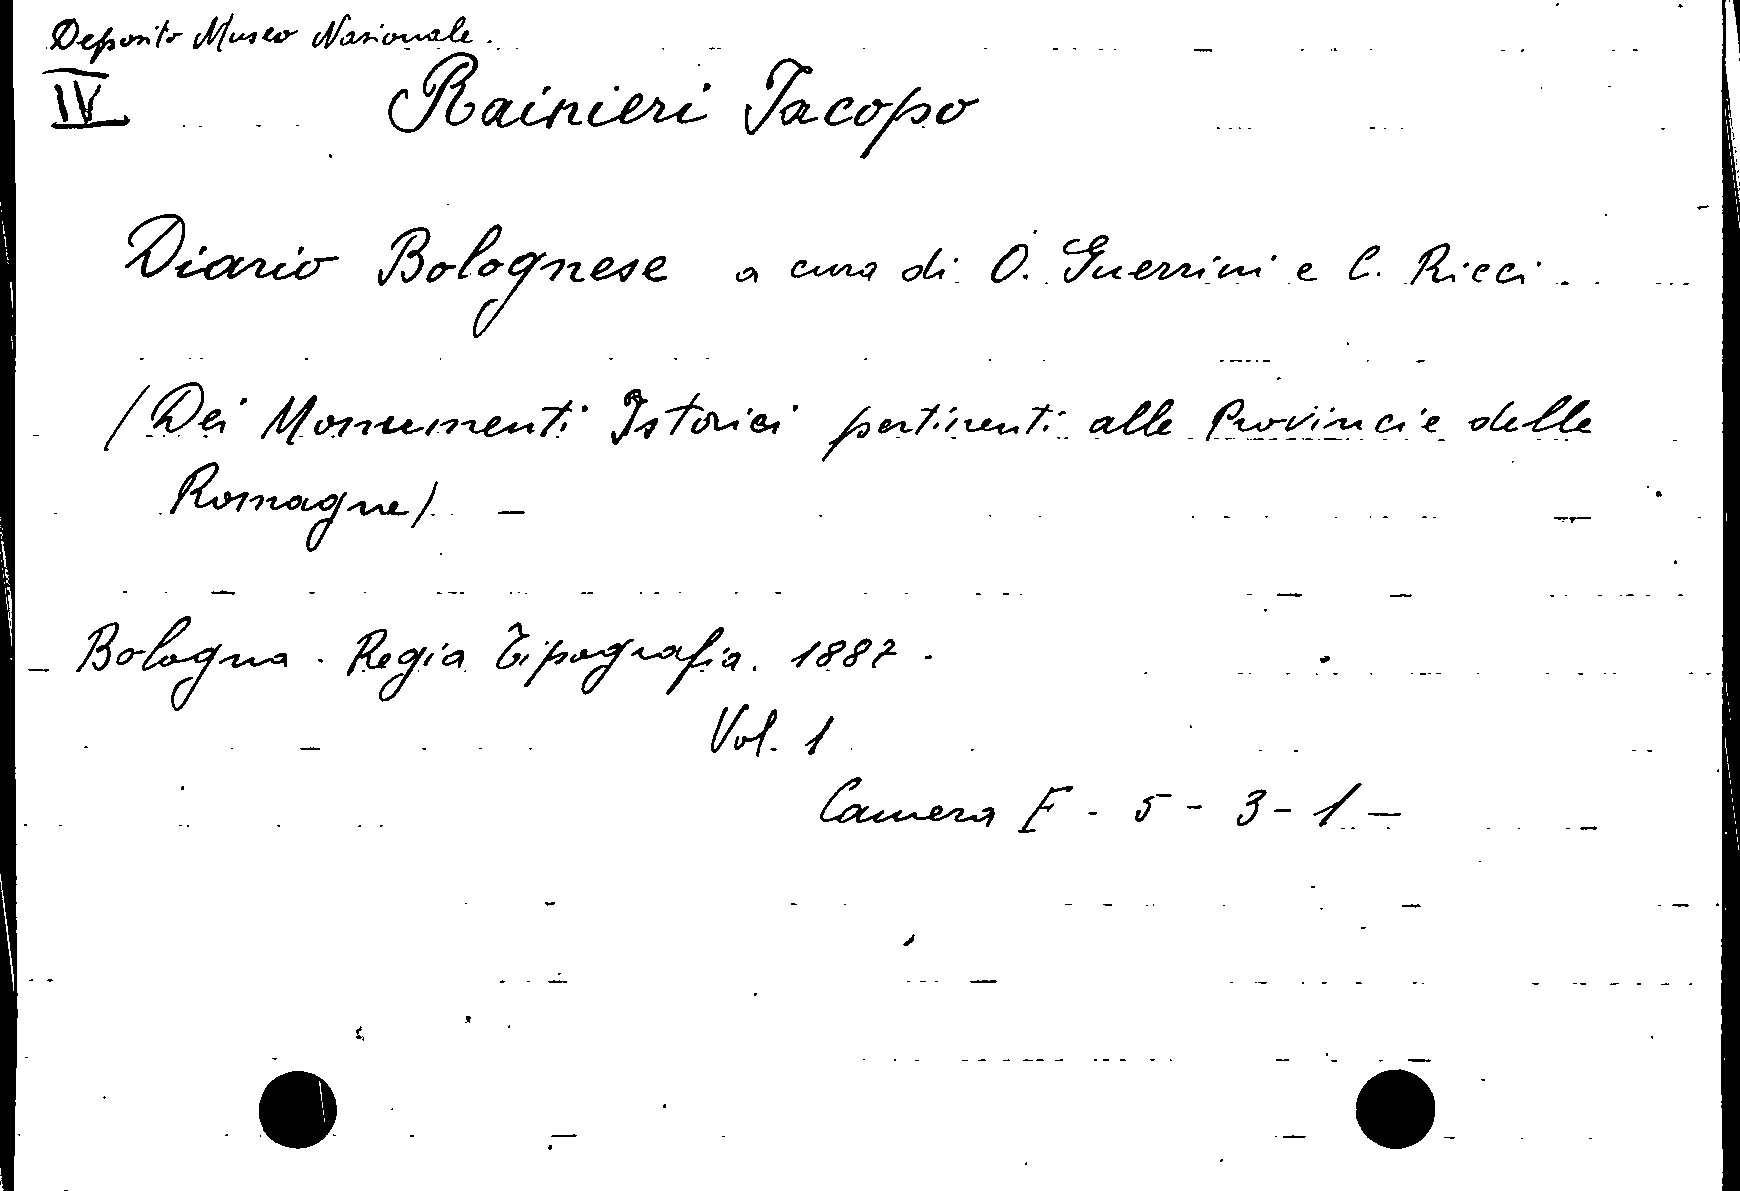 Deposito Museo Nazionale.
IV
Rainieri Jacopo
Diario Bolognese a cura di O. Guerrini e C. Ricci.
(Dei Monumenti Istorici pertinenti alle Provincie delle
Romagne). —
Bologna. Regia Tipografia. 1887.
Vol. 1
Camera F - 5 - 3 - 1 —